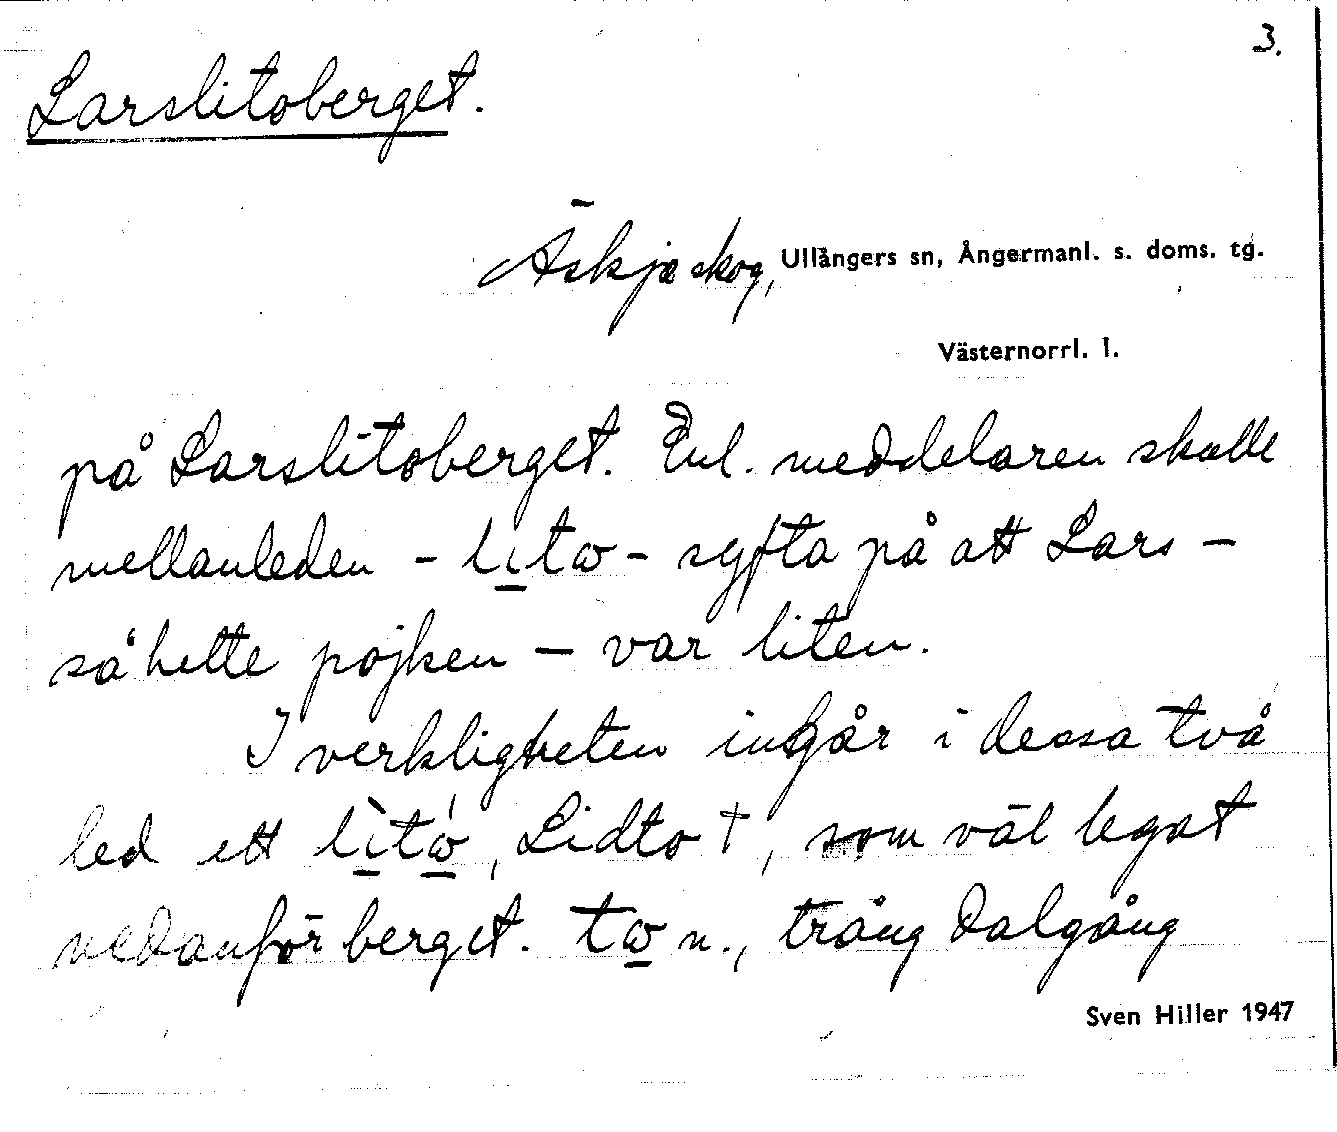 3.
Larslitoberget.
Äskja skog, Ullångers sn, Ångermanl. s. doms. tg.
Västernorrl. l.
på Larslitoberget. Enl. meddelaren skulle
mellanleden - li̱tω - syfta på att Lars -
så hette pojken - var liten.
I verkligheten ingår i dessa två
led ett lì̱tώ̱, Lidto †, som väl legat
nedanför berget. tω̱ n., trång dalgång
Sven Hiller 1947